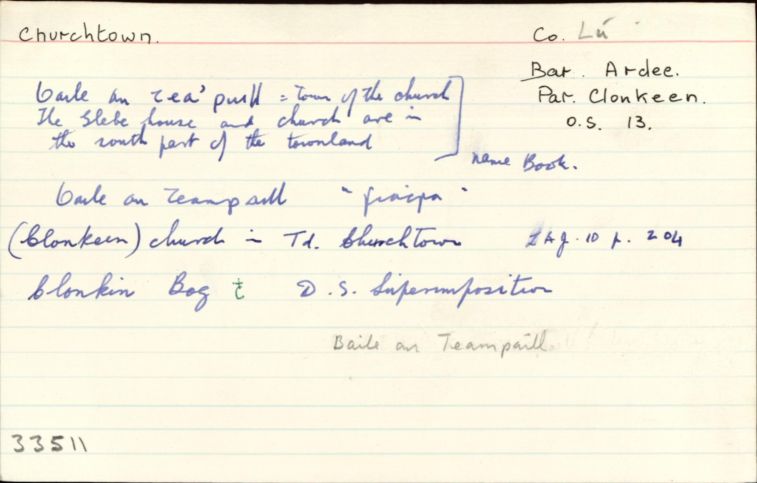 Churchtown. Co. Lú
Bar. Ardee.
Par. Clonkeen.
O.S. 13.
baile an tea' puill = town of the church
The Glebe house and church are in
the south part of the townland
name Book.
baile an teampaill " "
(Clonkeen) church in Td. Churchtown 10 p. 204
Clonkin Bog D.S. Superimposition
Baile an Teampaill
33511